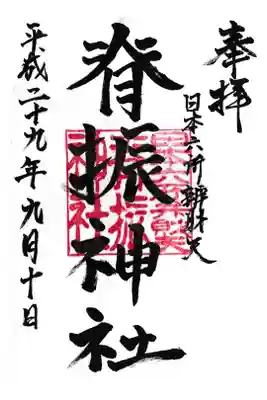 奉拝
日本六所辨財天
脊振神社
平成二十九年九月十日